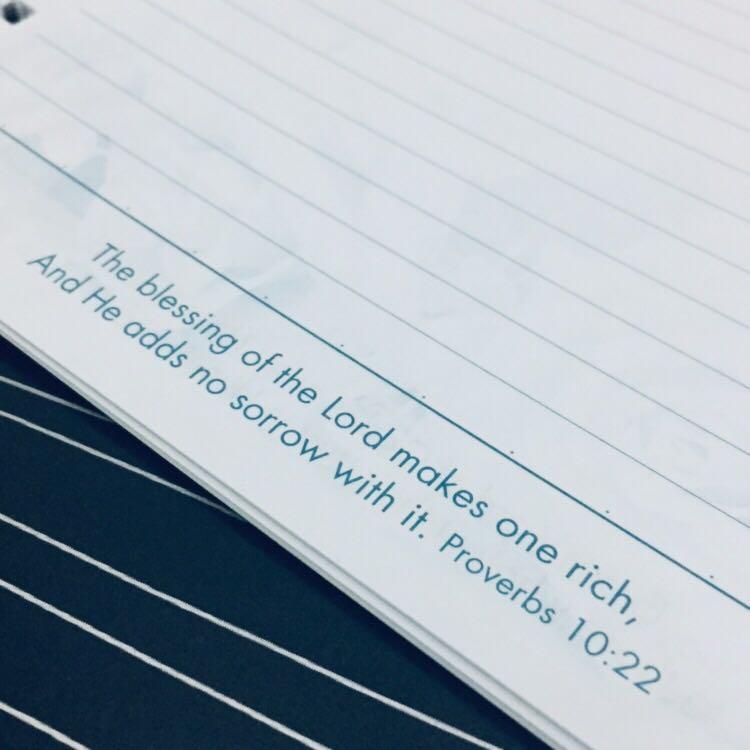 The blessing of the Lord makes one rich,
And He adds no sorrow with it. Proverbs 10:22